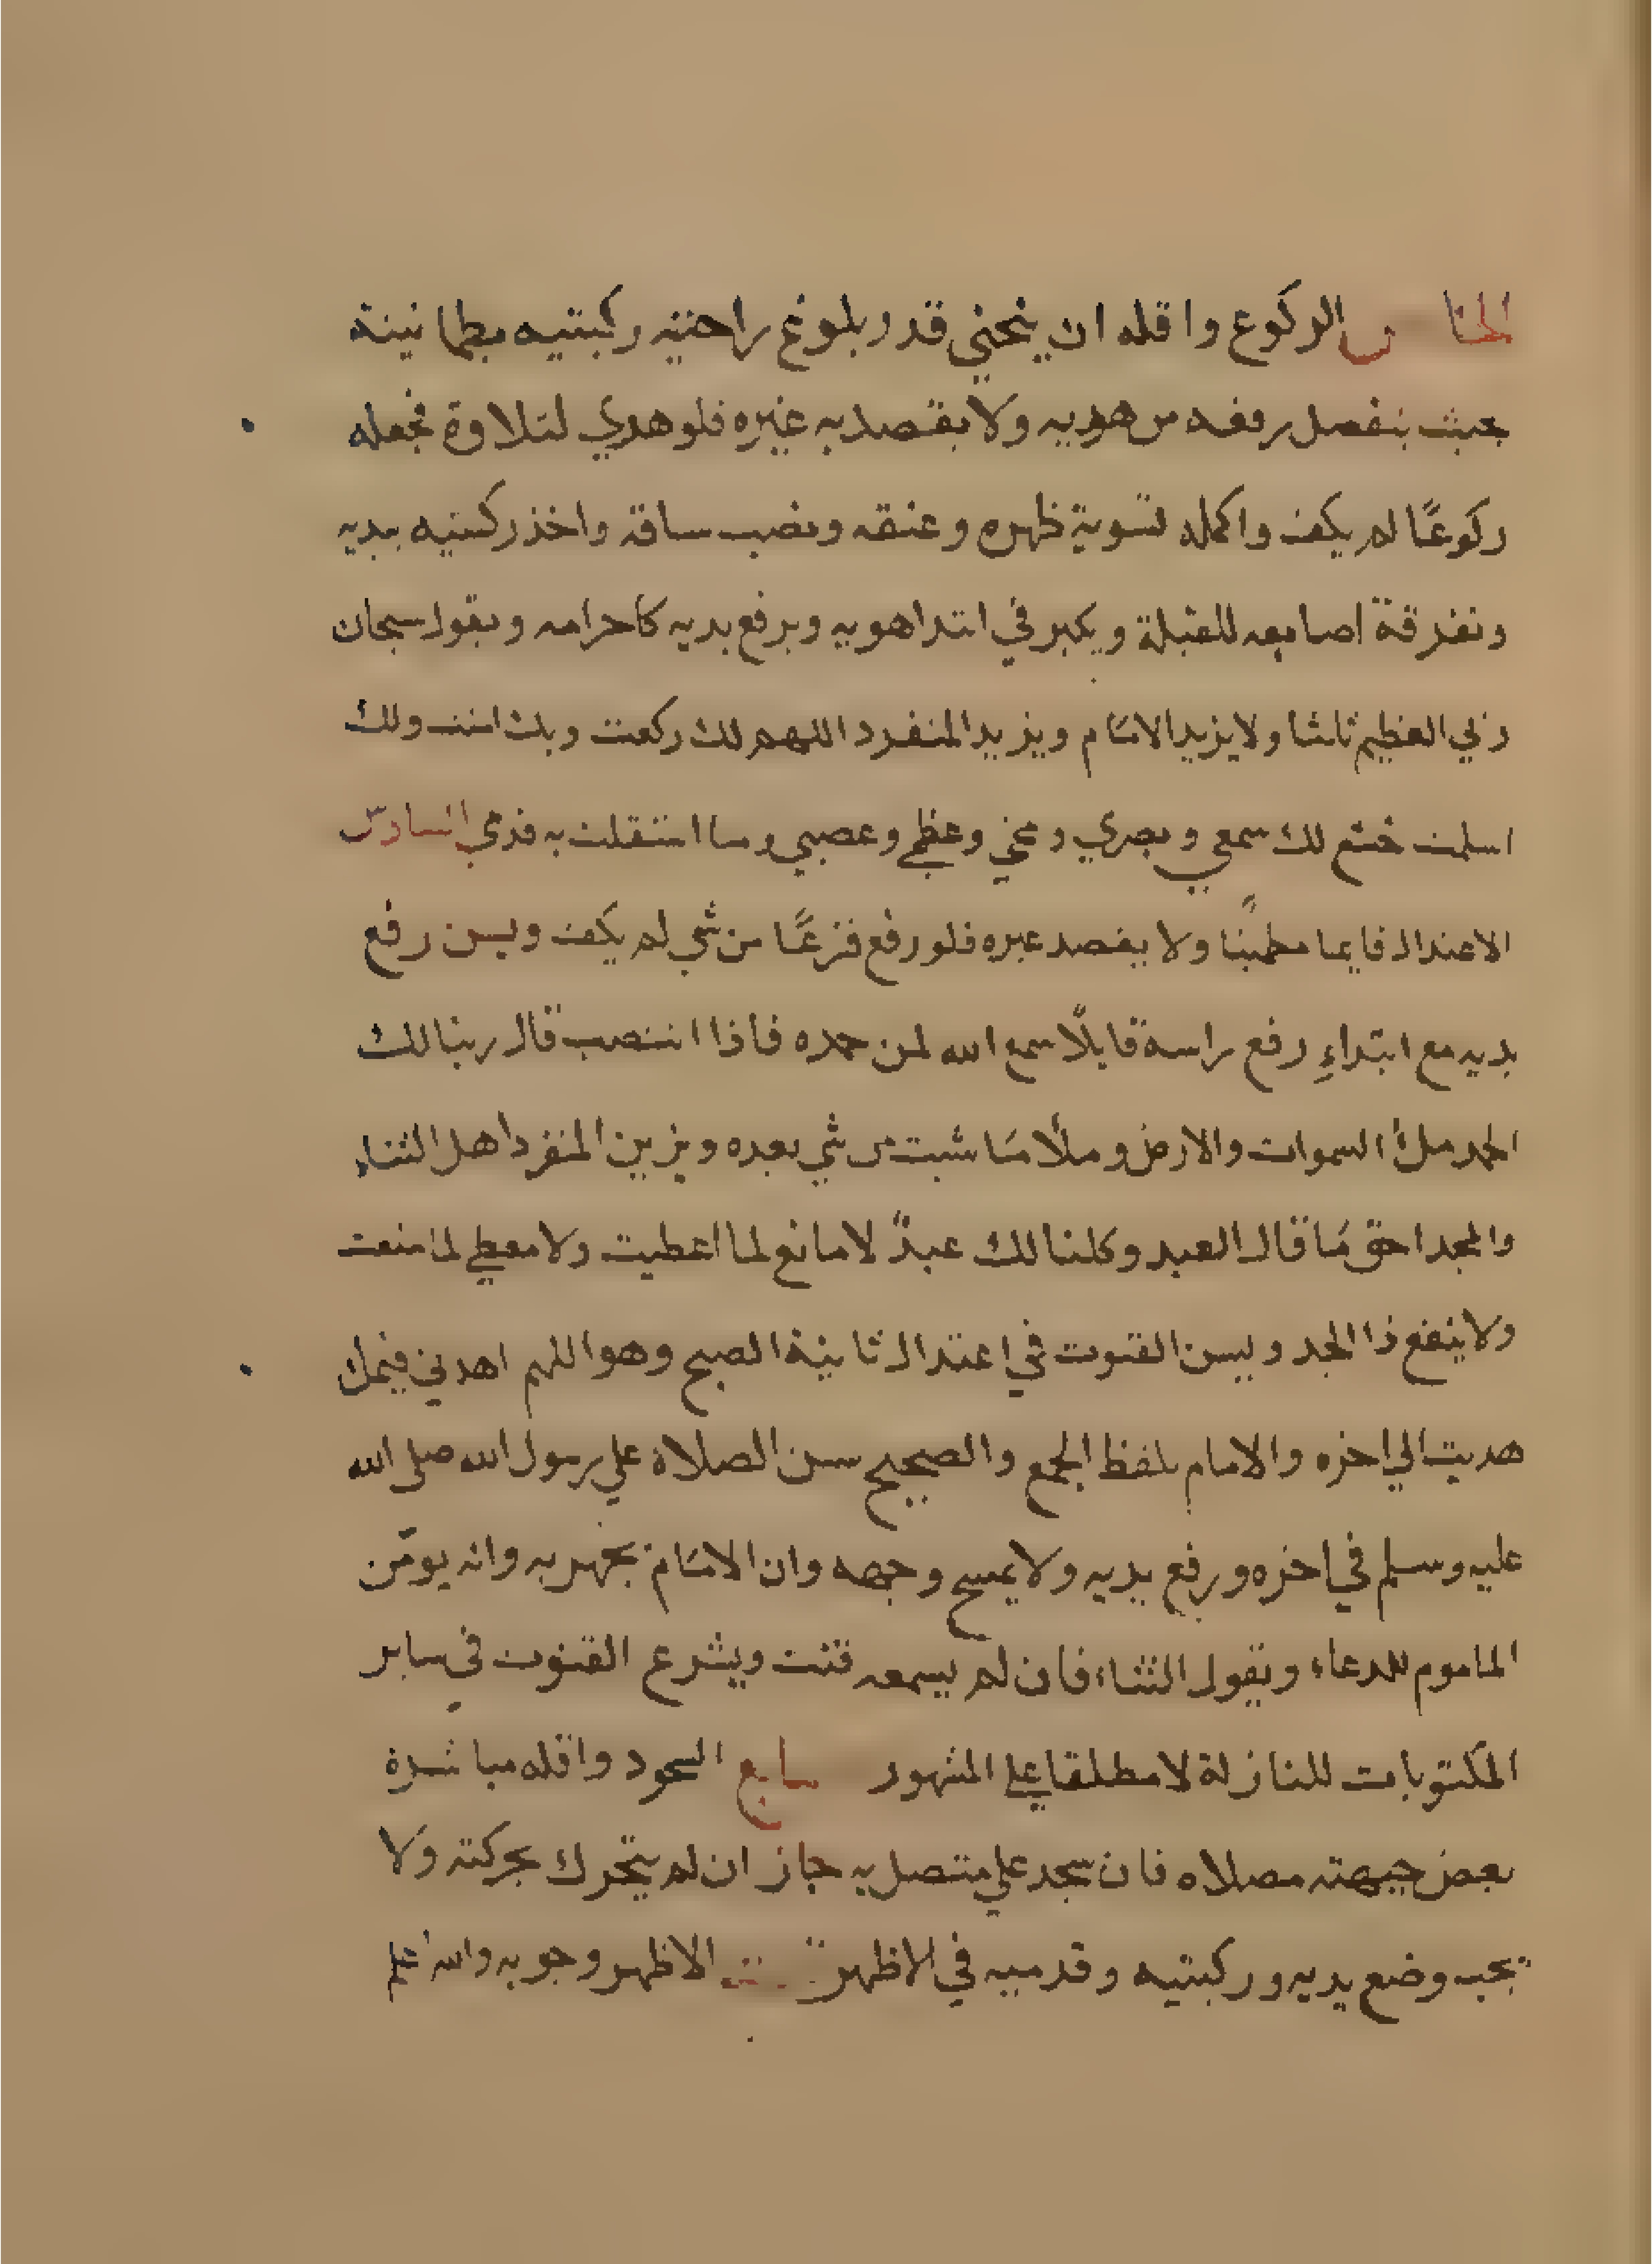 الخامس الركوع واقله ان ينحني قدر بلوغ راحتيه ركبتيه بطمانينة
بحيث ينفصل رفعه من هويه ولا يقصد به غيره فلو هوي لتلاوة فجعله
ركوعًا لم يكف واكمله تسوية ظهره وعنقه ونصب ساقه واخذ ركبتيه بيديه
وتفرقة اصابعه للقبلة ويكبر في ابتدا هويه ويرفع يديه كاحرامه ويقول سبحان
ربي العظيم ثلاثا ولا يزيد الامام ويزيد المنفرد اللهم لك ركعت وبك امنت ولك
اسلمت خشع لك سمعي وبصري ومخي وعظمي وعصبي وما استقلت به قدمي السادس
الاعتدال قايما مطمينًا ولا يقصد غيره فلو رفع فزعًا من شي لم يكف ويسن رفع
يديه مع ابتداءِ رفع راسه قايلًا سمع الله لمن حمده فاذا انتصب قال ربنا لك
الحمد ملأ السموات والارض وملأ مَا شيت من شي بعده ويزيد المنفرد اهل الثناء
والمجد احق مَا قال العبد وكلنا لك عبدٌ لا مانع لما اعطيت ولا معطي لما منعت
ولا ينفع ذا الجد ويسن القنوت في اعتدال ثانية الصبح وهو اللهم اهدني فيمن
هديت الي اخره والامام بلفظ الجمع والصحيح سن الصلاة علي رسول الله صلي الله
عليه وسلم في اخره ورفع يديه ولا يمسح وجهه وان الامَام يجهر به وانه يومّن
الماموم للدعاء ويقول الثناء فان لم يسمعه قنت ويشرع القنوت في ساير
المكتوبات للنازلة لا مطلقا علي المشهور سابع السجود واقله مباشرة
بعض جبهته مصلاه فان سجد علي متصل به جاز ان لم يتحرك بحركته ولا
يجب وضع يديه وركبتيه وقدميه في الاظهر الاظهر وجوبه والله اعلم